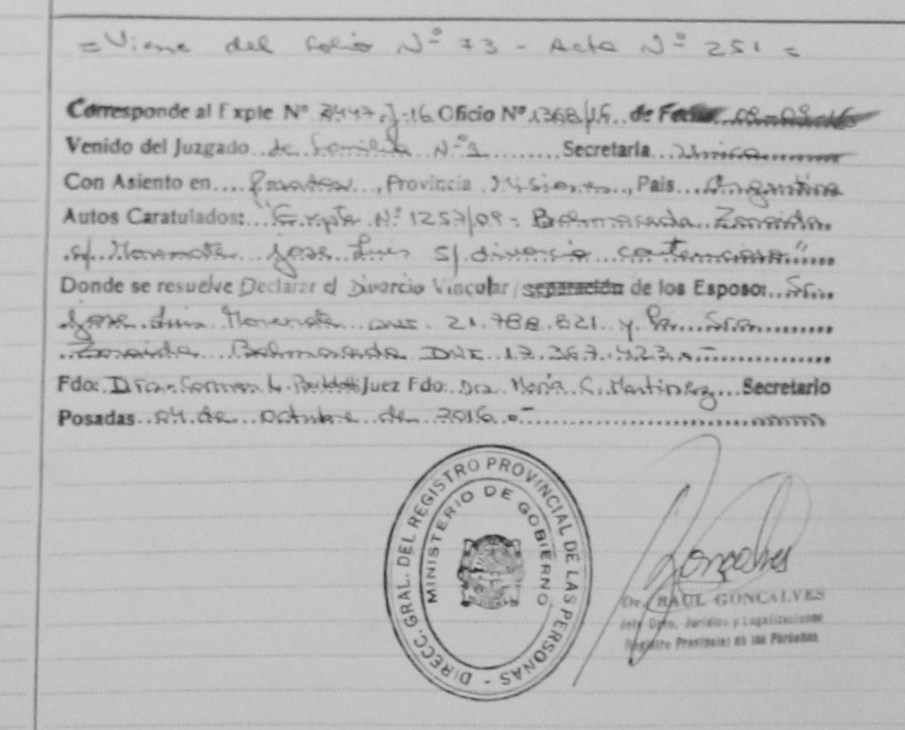 = Viene del folio Nº 73 - Acta Nº 251 =
Corresponde al Expte Nº J-16 Oficio Nº 1368/15 de Fecha
Venido del Juzgado de Familia Nº 1 Secretaria Unica
Con Asiento en Posadas, Provincia Misiones, Pais Argentina
Autos Caratulados: "Expte Nº 1257/09 - Balmaceda Zoraida
s/ Jose Luis s/ divorcio contencioso"
Donde se resuelve Declarar el Divorcio Vincular / separación de los Esposos Sr.
Jose Luis DNI. 21.788.821 y la Sra
Zoraida Balmaceda DNI 17.367.423.-
Fdo: Dra. Carmen Juez Fdo: Dra. María C. Martinez Secretario
Posadas 04 de octubre de 2016.-
DIRECC. GRAL. DEL REGISTRO PROVINCIAL DE LAS PERSONAS -
MINISTERIO DE GOBIERNO
Gonçalves
Dr. RAUL GONCALVES
Jefe Dpto. Jurídico y Legalizaciones
Registro Provincial de las Personas